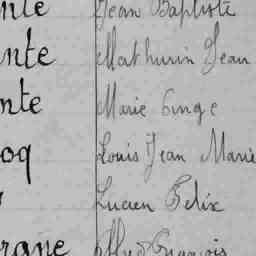 nte Jean Baptiste
nte Mathurin Jean
nte Marie Ange
oq Louis Jean Marie
Lucien Félix
François